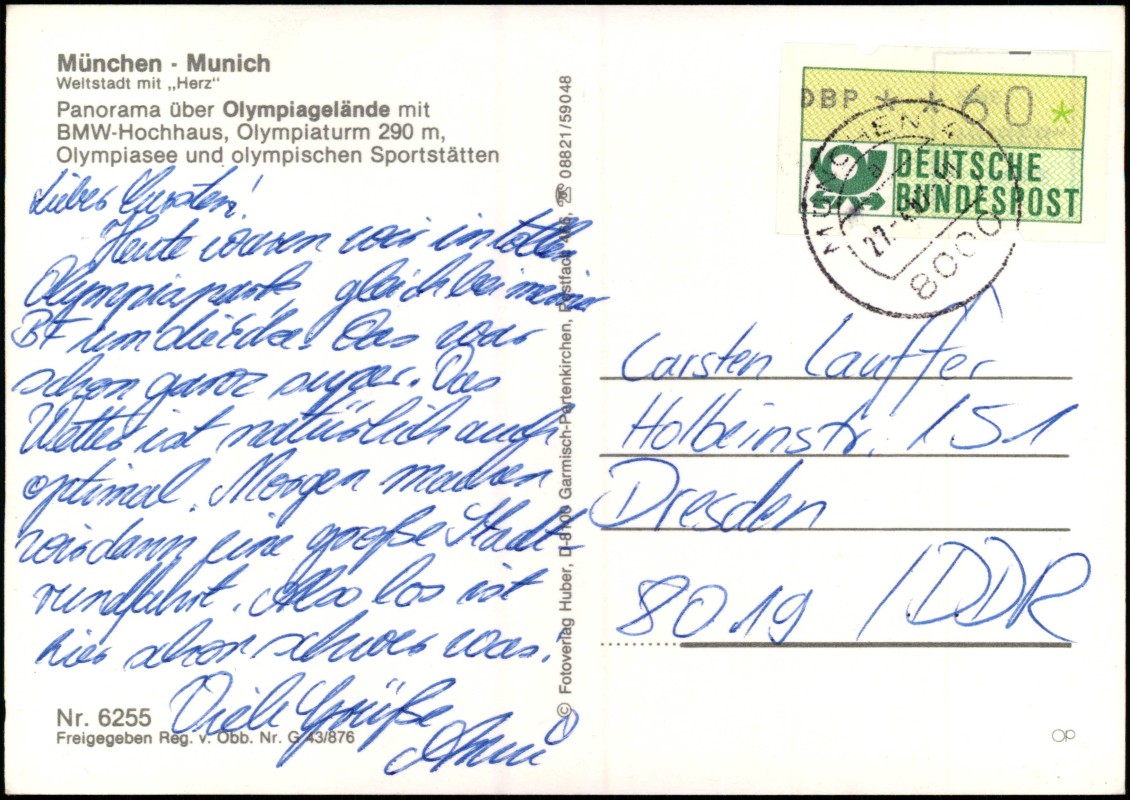 München · Munich
Weltstadt mit „Herz“
Panorama über Olympiagelände mit
BMW-Hochhaus, Olympiaturm 290 m,
Olympiasee und olympischen Sportstätten
Lieber Carsten!
Heute waren wir im tollen
Olympiapark, gleich bei meiner
BF um die Ecke. Das war
schon ganz super. Das
Wetter ist natürlich auch
optimal. Morgen machen
wir dann eine große Stadt-
rundfahrt. Also los ist
hier schon schwer was!
Viele Grüße
Nr. 6255
Freigegeben Reg. v. Obb. Nr. G 43/876
© Fotoverlag Huber, D-8100 Garmisch-Partenkirchen, Postfach ☏ 08821/59048
DBP * * 60 *
DEUTSCHE
BUNDESPOST
MÜNCHEN
27.
8000
Carsten Lauffer
Holbeinstr. 151
Dresden
8019 / DDR
OP